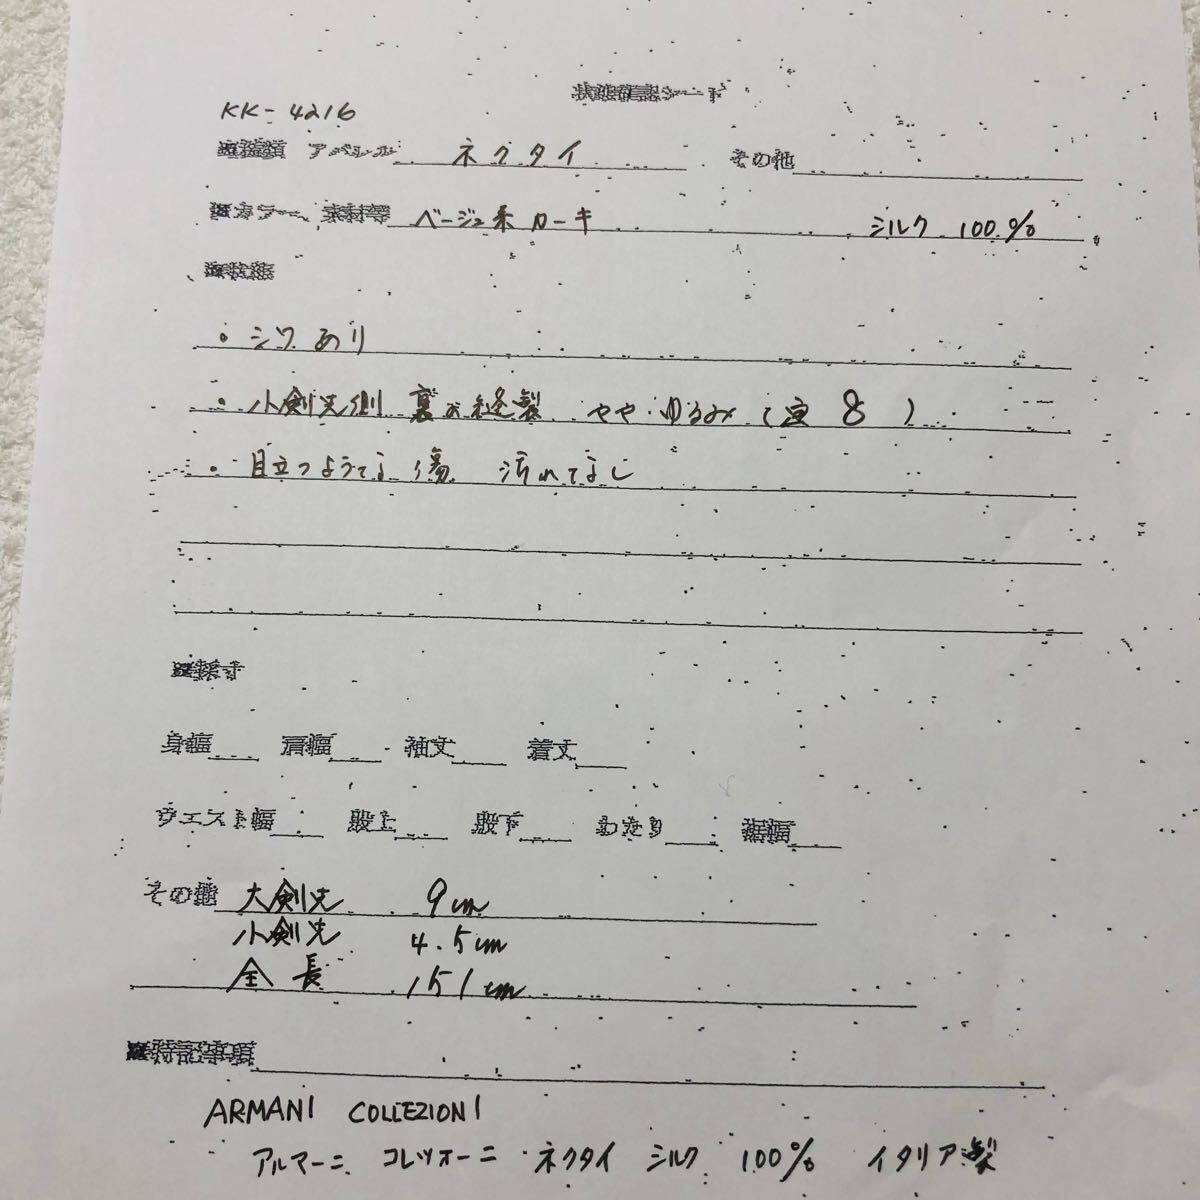 状態確認シート
KK-4216
■種類 アパレル ネクタイ その他
■カラー、素材等 ベージュ系カーキ シルク 100%
■状態
・シワあり
・小剣先側 裏の縫製 やや・ゆるみ(写 8 )
・目立つような傷 汚れてなし
■採寸
身幅 肩幅 袖丈 着丈
ウエスト幅 股上 股下 わたり 裾幅
その他 大剣先 9cm
小剣先 4.5cm
全長 151cm
■特記事項
ARMANI COLLEZIONI
アルマーニ コレツォーニ ネクタイ シルク 100% イタリア製